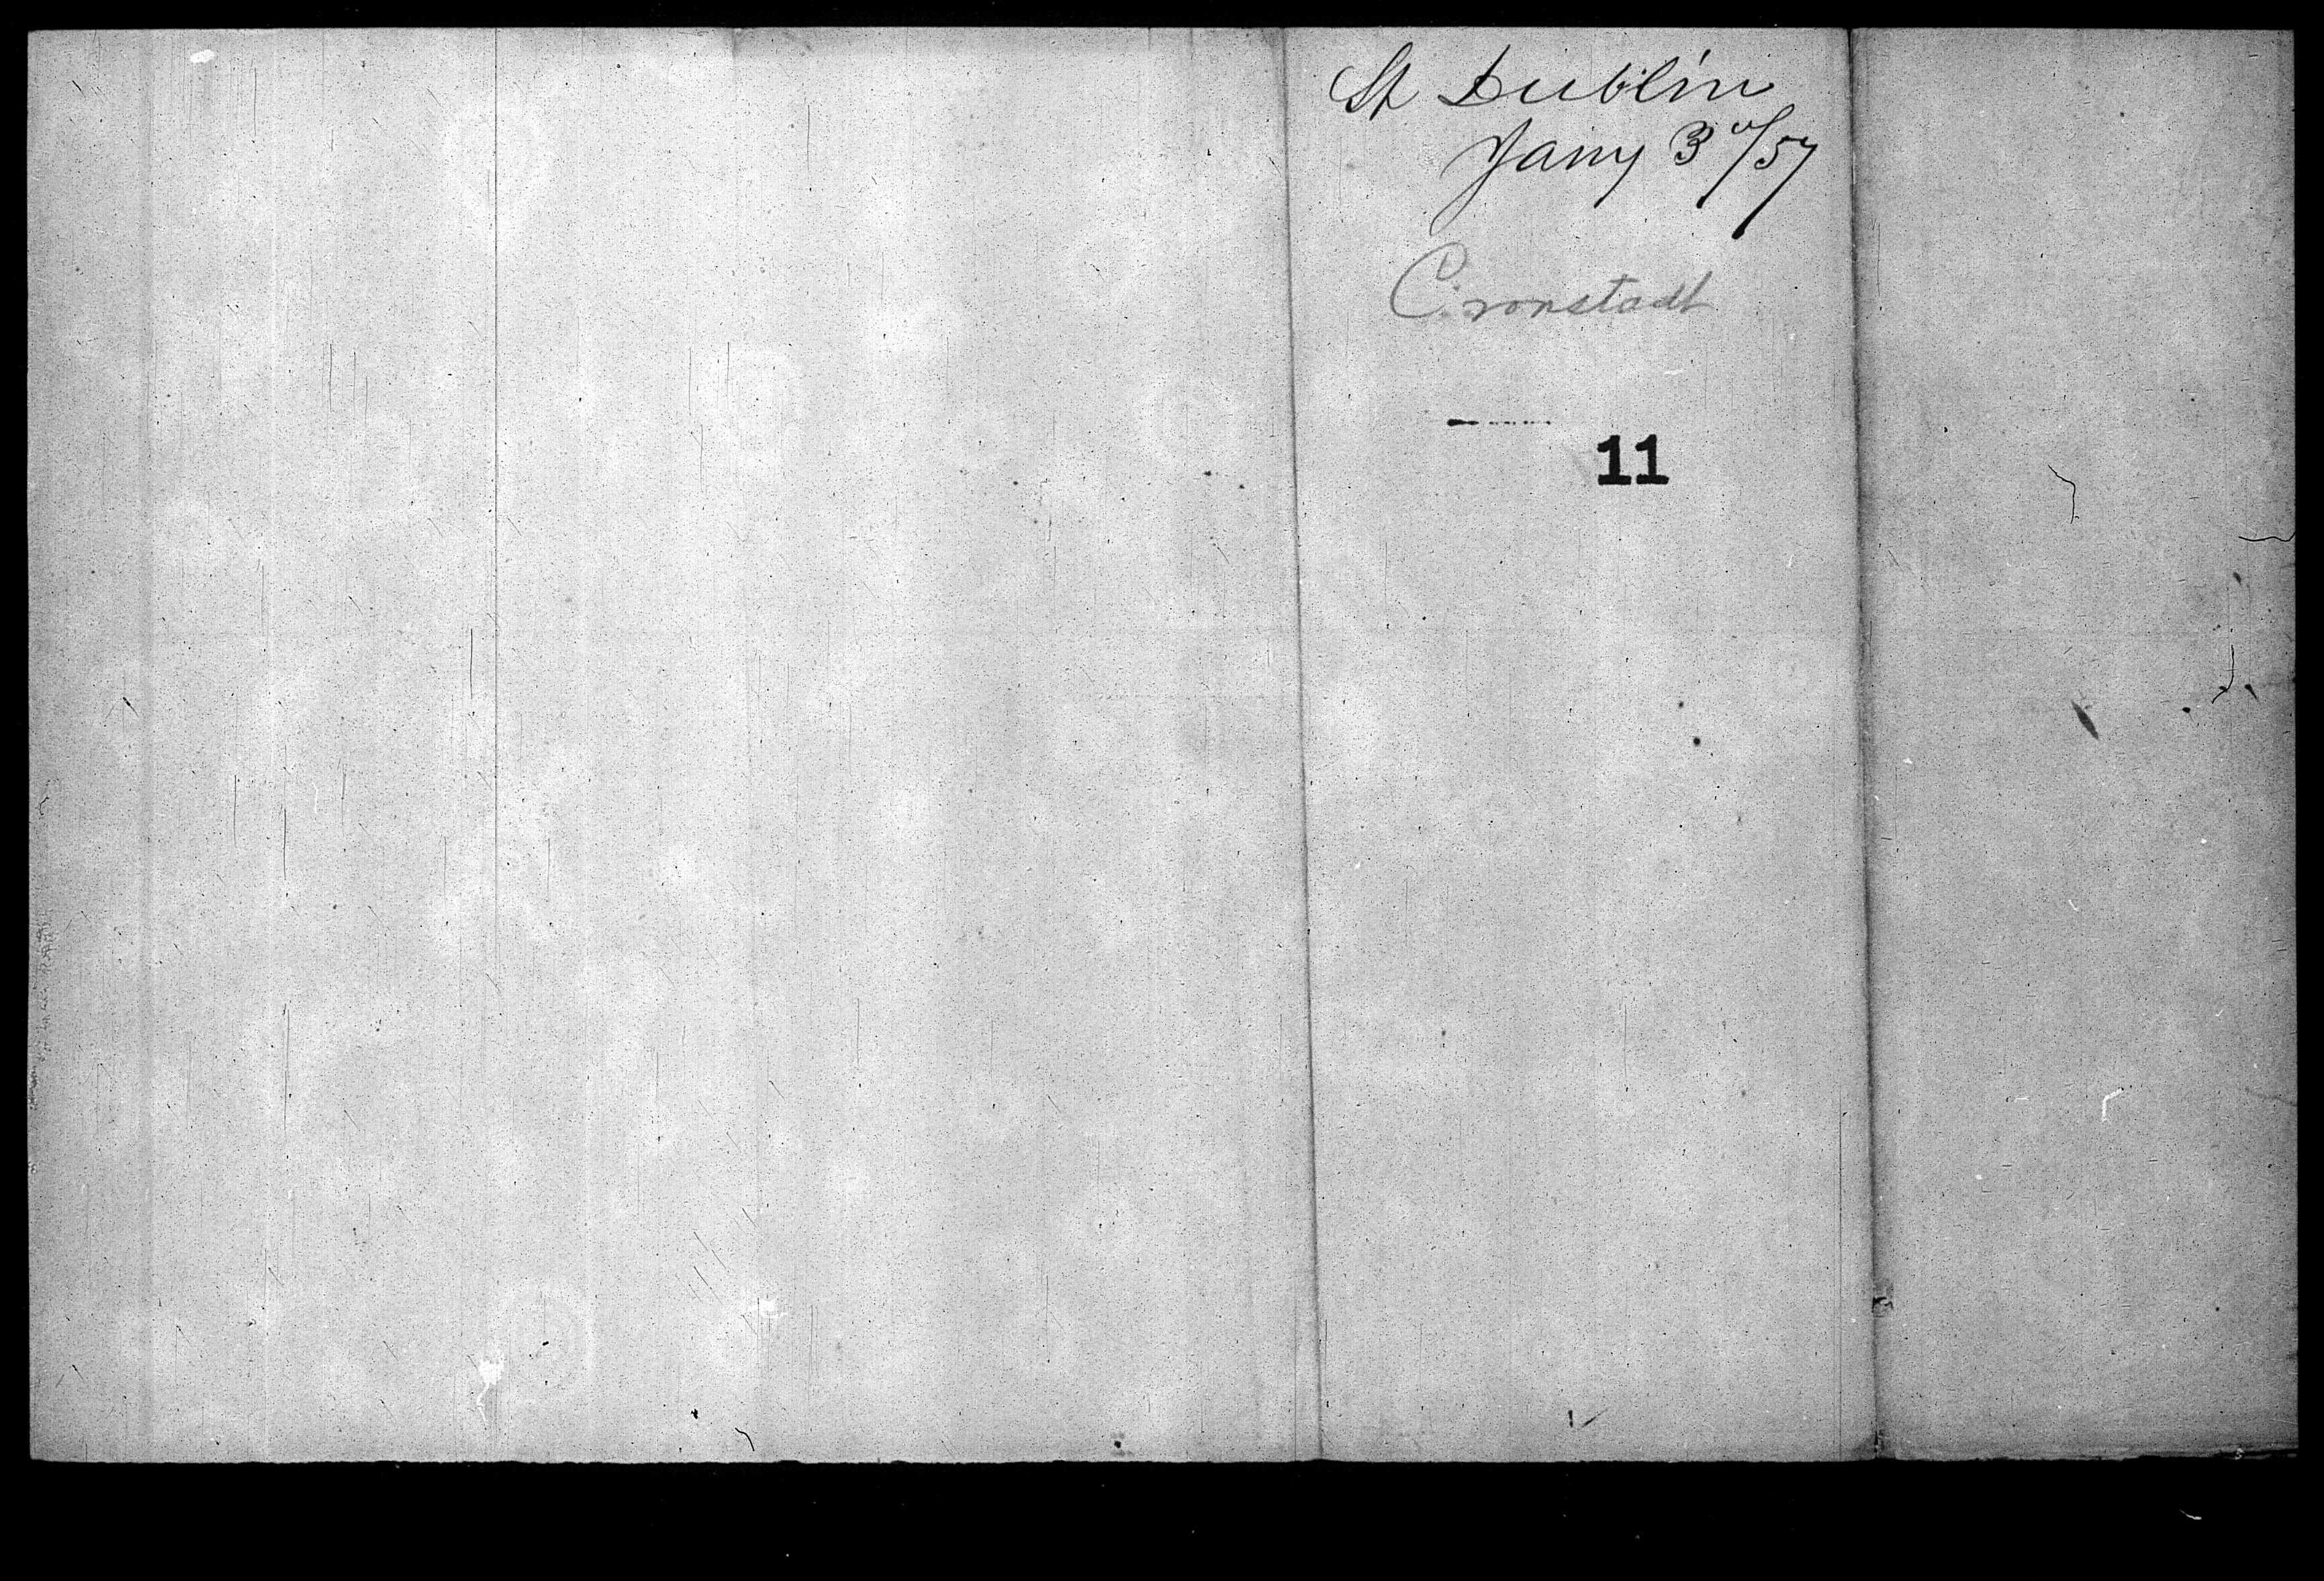 St Dublin
Jany 3d/57
Cronstadt
11